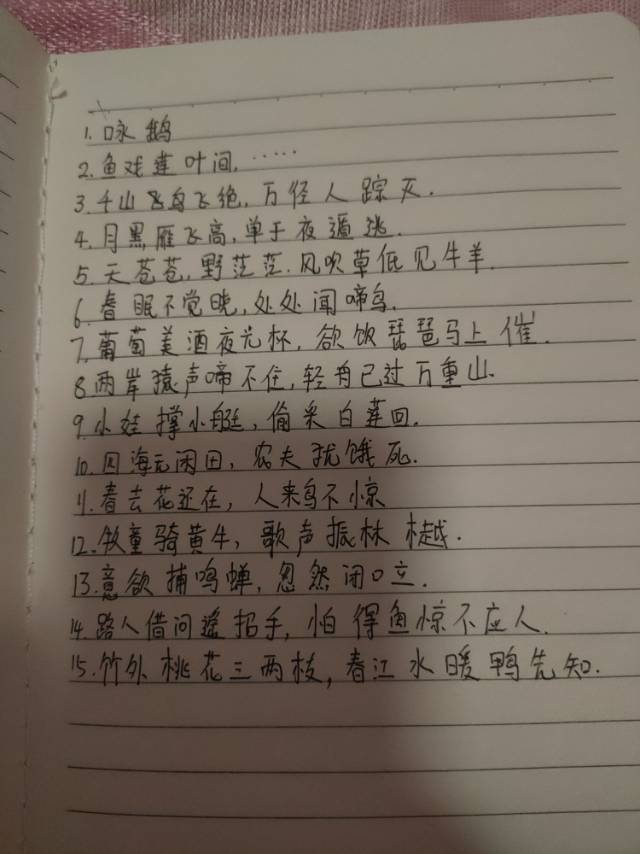 1. 咏鹅
2. 鱼戏莲叶间,……
3. 千山鸟飞绝,万径人踪灭.
4. 月黑雁飞高,单于夜遁逃.
5. 天苍苍,野茫茫.风吹草低见牛羊.
6. 春眠不觉晓,处处闻啼鸟.
7. 葡萄美酒夜光杯,欲饮琵琶马上催.
8. 两岸猿声啼不住,轻舟已过万重山.
9. 小娃撑小艇,偷采白莲回.
10. 四海无闲田,农夫犹饿死.
11. 春去花还在,人来鸟不惊
12. 牧童骑黄牛,歌声振林樾.
13. 意欲捕鸣蝉,忽然闭口立.
14. 路人借问遥招手,怕得鱼惊不应人.
15. 竹外桃花三两枝,春江水暖鸭先知.